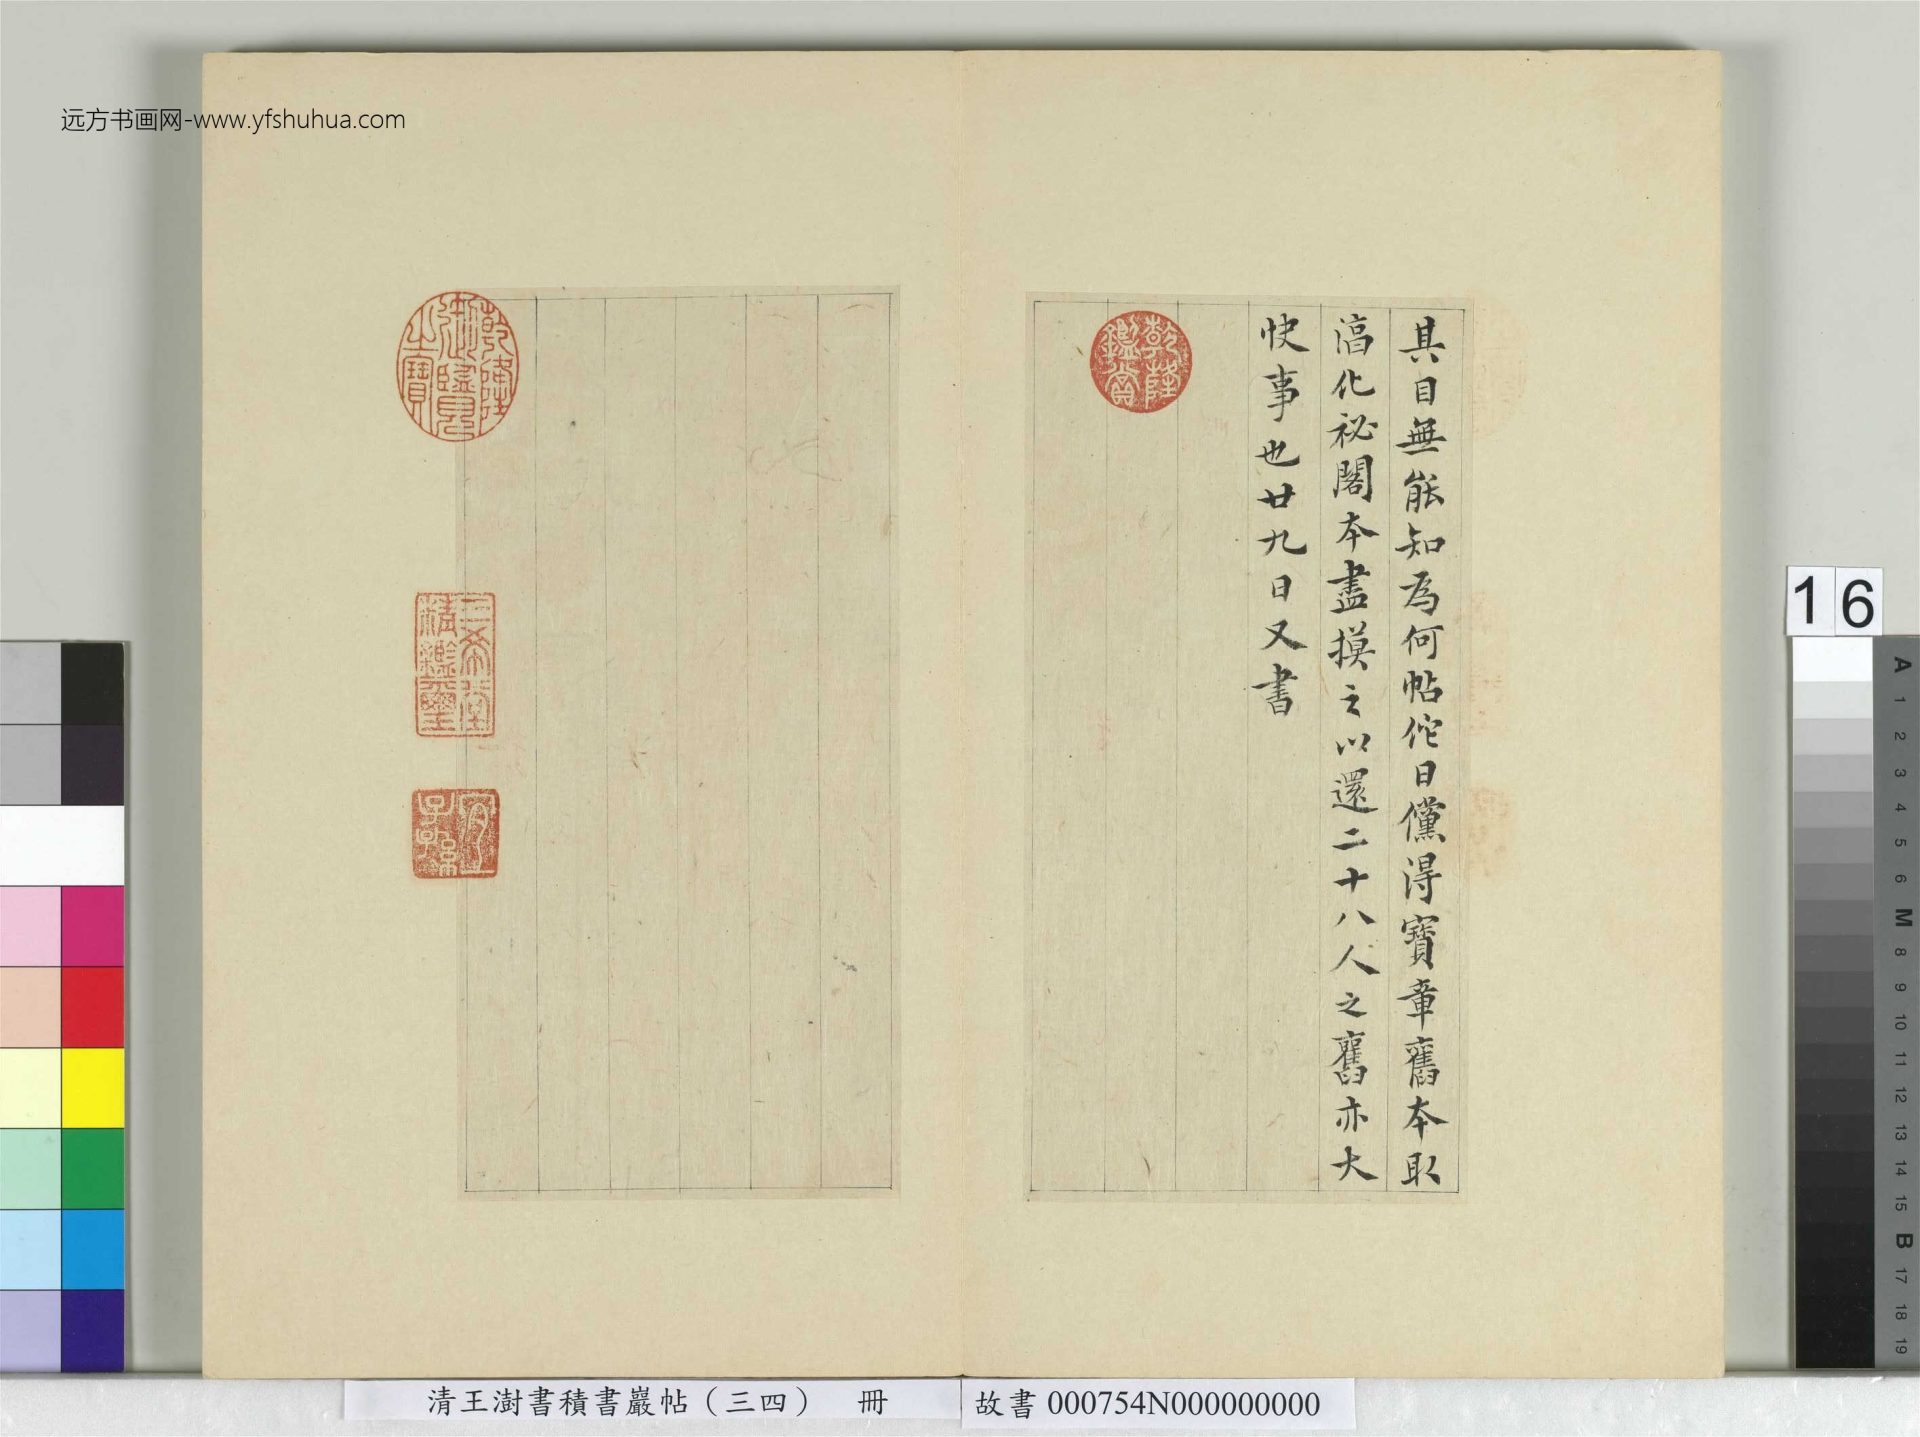 远方书画网-www.yfshuhua.com
具目無能知為何帖佗日儻得寶章舊本取
淳化祕閣本盡摸之以還二十八人之舊亦大
快事也廿九日又書
乾隆鑑賞
乾隆御覽之寶
三希堂精鑑璽
宜子孫
16
A
1
2
3
4
5
6
M
8
9
10
11
12
13
14
15
B
17
18
19
清王澍書積書巖帖（三四） 冊
故書 000754N000000000